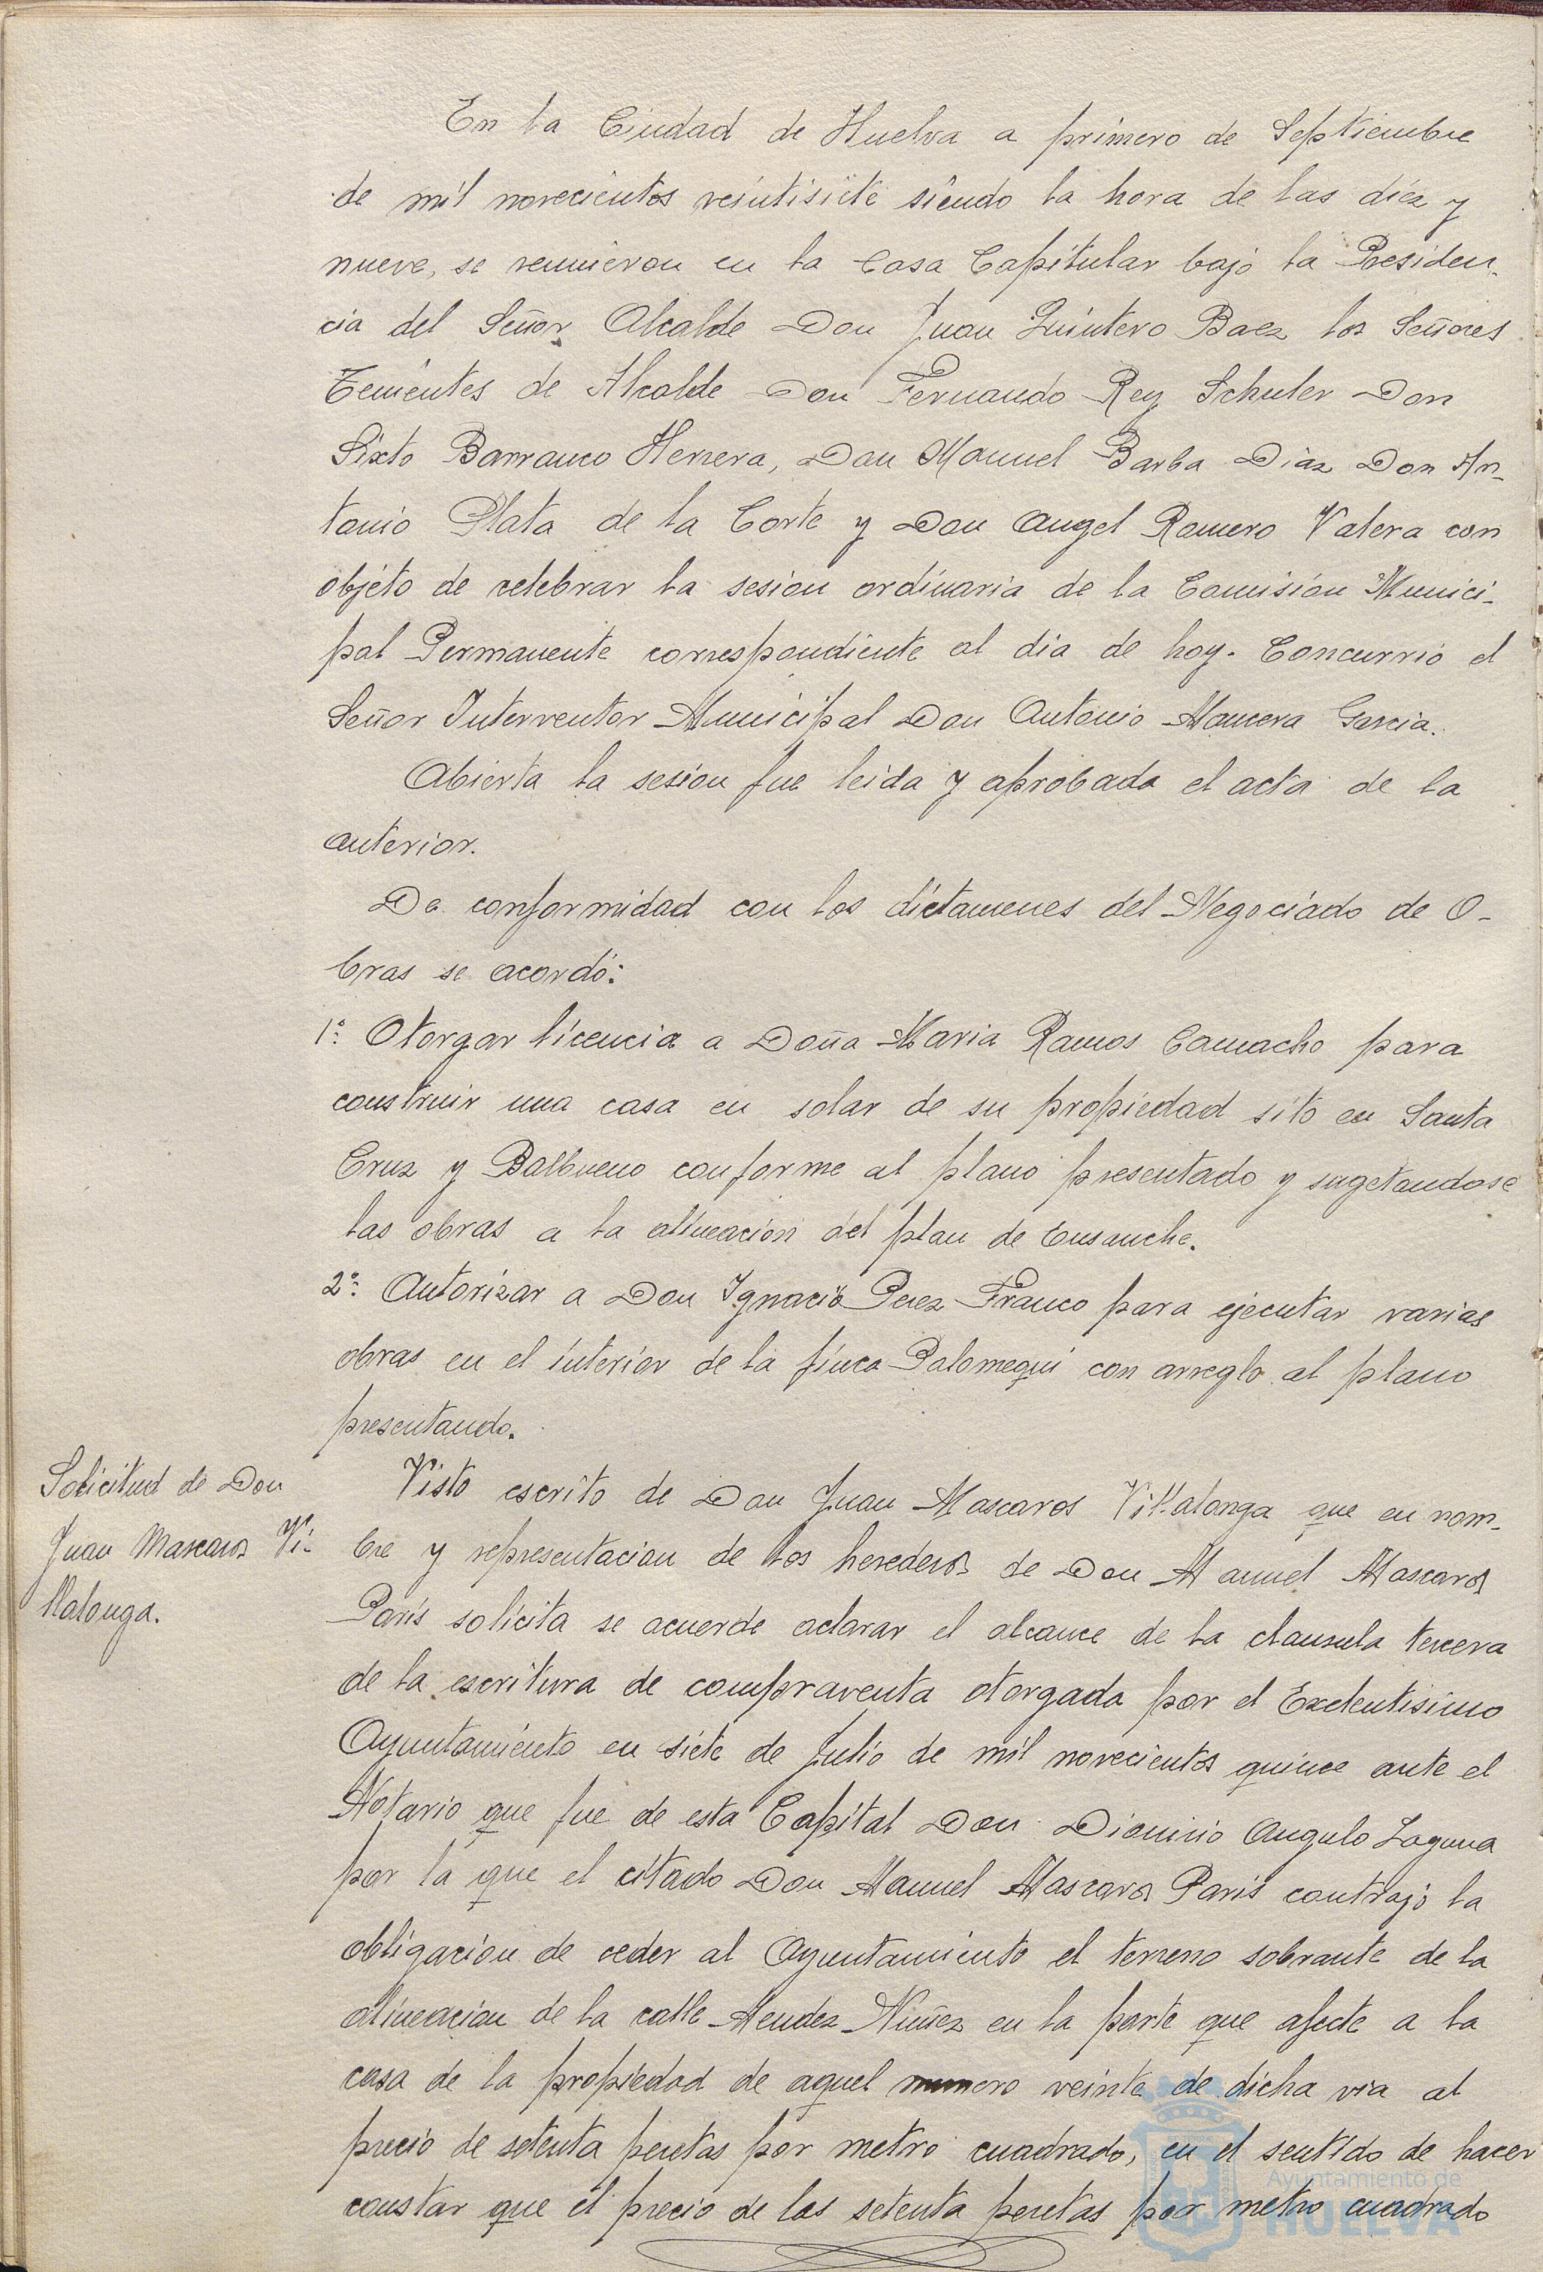 En la Ciudad de Huelva a primero de Septiembre
de mil novecientos veintisiete siendo la hora de las diez y
nueve, se reunieron en la Casa Capitular bajo la Presiden-
cia del Señor Alcalde Don Juan Quintero Baez los Señores
Tenientes de Alcalde Don Fernando Rey Schuler Don
Sixto Barranco Herrera, Don Manuel Barba Diaz Don An-
tonio Plata de la Corte y Don Angel Romero Valera con
objeto de celebrar la sesion ordinaria de la Comisión Munici-
pal Permanente correspondiente al dia de hoy. Concurrió el
Señor Interventor Municipal Don Antonio Mancera Garcia.
Abierta la sesion fue leida y aprobada el acta de la
anterior.
De conformidad con los dictamenes del Negociado de O-
bras se acordó:
1º: Otorgar licencia a Doña Maria Ramos Camacho para
construir una casa en solar de su propiedad sito en Santa
Cruz y Balbueno conforme al plano presentado y sugetandose
las obras a la alineación del plan de Ensanche.
2º: Autorizar a Don Ignacio Perez Franco para ejecutar varias
obras en el interior de la finca Palomequi con arreglo al plano
presentando.
Solicitud de Don
Juan Mascaros Vi-
llalonga.
Visto escrito de Don Juan Mascaros Villalonga que en nom-
bre y representacion de los herederos de Don Manuel Mascaros
Paris solicita se acuerde aclarar el alcance de la clausula tercera
de la escritura de compraventa otorgada por el Exelentisimo
Ayuntamiento en siete de Julio de mil novecientos quince ante el
Notario que fue de esta Capital Don Dionisio Angulo Laguna
por la que el citado Don Manuel Mascaros Paris contrajo la
obligacion de ceder al Ayuntamiento el terreno sobrante de la
alineacion de la calle Mendez Nuñez en la parte que afecte a la
casa de la propiedad de aquel numero veinte de dicha via al
precio de setenta pesetas por metro cuadrado, en el sentido de hacer
constar que el precio de las setenta pesetas por metro cuadrado
Ayuntamiento de
HUELVA